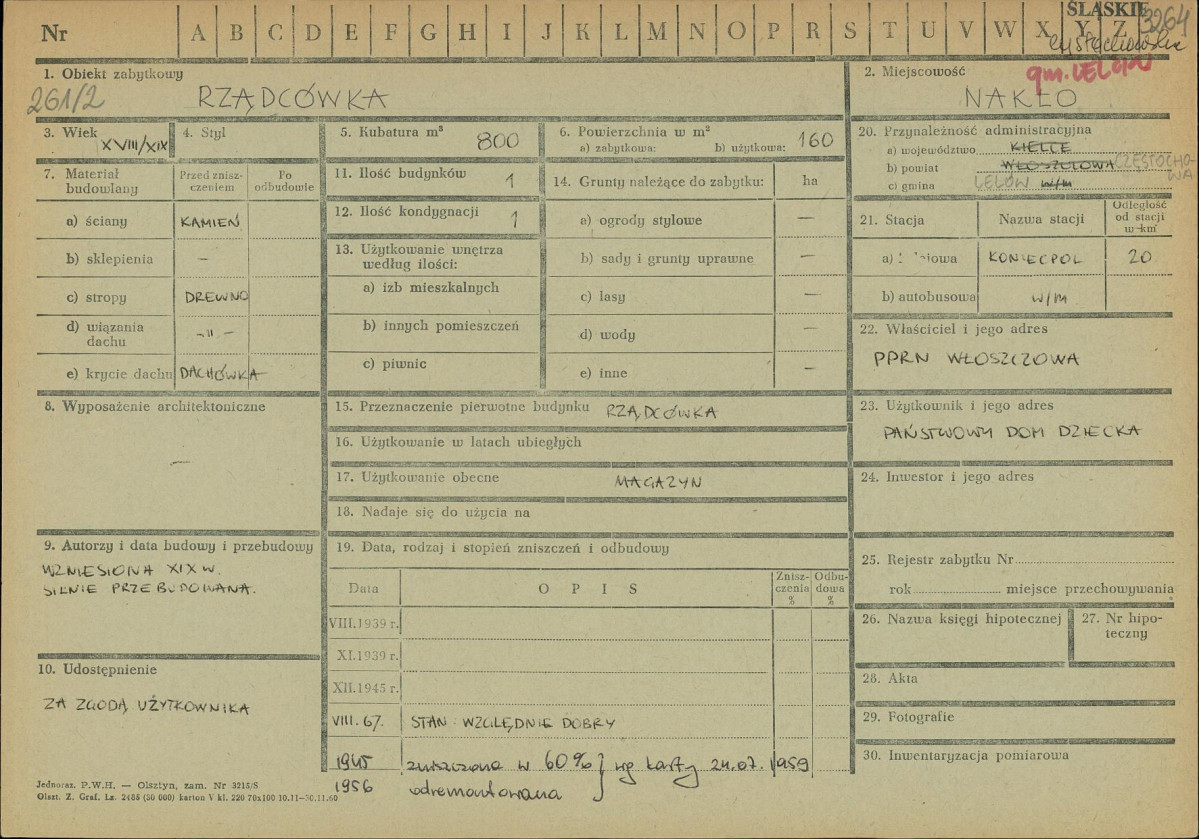 Nr A B C D E F G H I J K L M N O P R S T U V W X Y Z
ŚLĄSKIE
3264
częstochowskie
1. Obiekt zabytkowy
261/2
RZĄDCÓWKA
2. Miejscowość
gm. LELÓW
NAKŁO
3. Wiek
XVIII/XIX
4. Styl
5. Kubatura m³ 800
6. Powierzchnia w m²
a) zabytkowa: b) użytkowa: 160
20. Przynależność administracyjna
a) województwo KIELCE
b) powiat WŁOSZCZOWA CZĘSTOCHOWA
c) gmina LELÓW w/m
7. Materiał budowlany
Przed zniszczeniem
Po odbudowie
a) ściany KAMIEŃ
b) sklepienia —
c) stropy DREWNO
d) wiązania dachu -„-
e) krycie dachu DACHÓWKA
11. Ilość budynków 1
12. Ilość kondygnacji 1
13. Użytkowanie wnętrza według ilości:
a) izb mieszkalnych
b) innych pomieszczeń
c) piwnic
14. Grunty należące do zabytku: ha
a) ogrody stylowe —
b) sady i grunty uprawne —
c) lasy —
d) wody —
e) inne —
21. Stacja
Nazwa stacji
Odległość od stacji w km
a) KONIECPOL 20
b) autobusowa w/m
22. Właściciel i jego adres
PPRN WŁOSZCZOWA
8. Wyposażenie architektoniczne
—
15. Przeznaczenie pierwotne budynku RZĄDCÓWKA
16. Użytkowanie w latach ubiegłych
17. Użytkowanie obecne MAGAZYN
18. Nadaje się do użycia na
23. Użytkownik i jego adres
PAŃSTWOWY DOM DZIECKA
24. Inwestor i jego adres
9. Autorzy i data budowy i przebudowy
WZNIESIONA XIX W.
SILNIE PRZEBUDOWANA.
19. Data, rodzaj i stopień zniszczeń i odbudowy
Data
O P I S
Zniszczenia %
Odbudowa %
VIII.1939 r.
XI.1939 r.
XII.1945 r.
VIII. 67. STAN : WZGLĘDNIE DOBRY
1945 zniszczona w 60% } wg karty 24.07.1959
1956 odremontowana
25. Rejestr zabytku Nr
rok miejsce przechowywania
26. Nazwa księgi hipotecznej
27. Nr hipoteczny
28. Akta
29. Fotografie
30. Inwentaryzacja pomiarowa
10. Udostępnienie
ZA ZGODĄ UŻYTKOWNIKA
Jednoraz. P.W.H. — Olsztyn, zam. Nr 3215/S
Olszt. Z. Graf. Ls. 2486 (50 000) karton V kl. 220 70x100 10.11-30.11.60